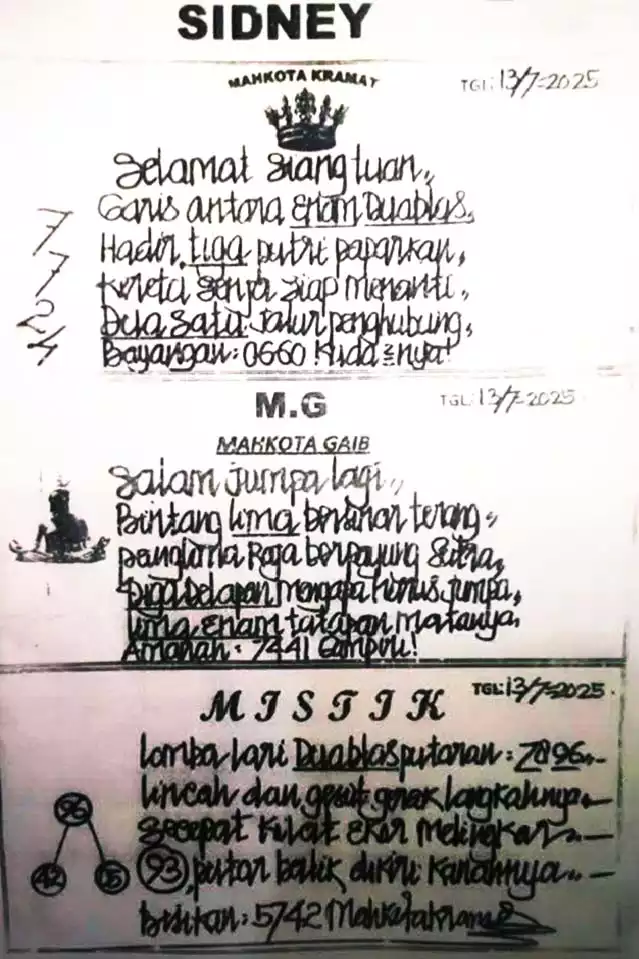 SIDNEY
MAHKOTA KRAMAT
TGL: 13/7-2025
Selamat siang tuan,,
Garis antara enam Duablas,
Hadir, tiga putri paparkan,
Kereta senja siap menanti.,
Dua satu jalur penghubung,
Bayangan: 0660 Kuda nya!
7
7
2
4
M.G
TGL: 13/7-2025
MAHKOTA GAIB
Salam jumpa lagi,,
Bintang lima bersinar terang,
panglima Raja berpayung Sutra,
Tiga Delapan mengapa harus jumpa,
lima enam tatapan matanya,
Amanah: 7441 Campur!
MISTIK
TGL: 13/7-2025
lomba lari Duablas putaran: 96,,-
lincah dan gesit gerak langkahnya,-
secepat kilat ekor melingkar,,-
93, putar balik dikiri kanannya,,-
Bisikan: 5742 Mahkota
96
42
15